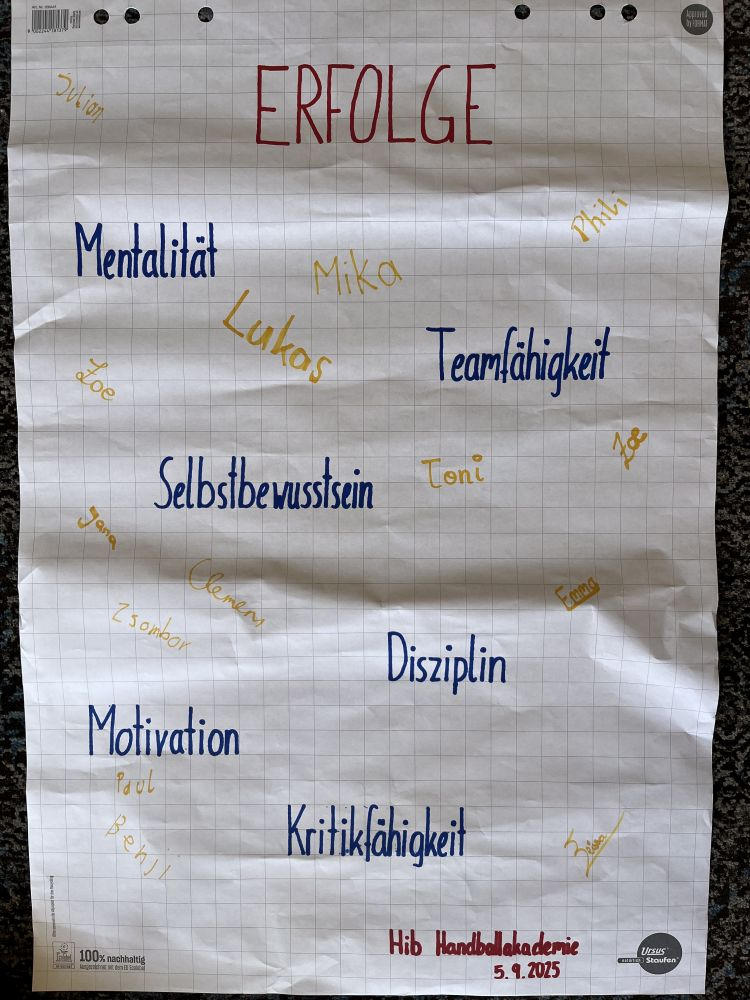 Approved
by FORMAT
ERFOLGE
Julian
Phili
Mentalität
Mika
Lukas
Teamfähigkeit
Zoe
Zoe
Selbstbewusstsein
Toni
Jana
Clemens
Emma
Zsombor
Disziplin
Motivation
Paul
Benji
Kritikfähigkeit
Hib Handballakademie
5.9.2025
100% nachhaltig
Ausgezeichnet mit dem EU Ecolabel
Ursus®
Staufen®